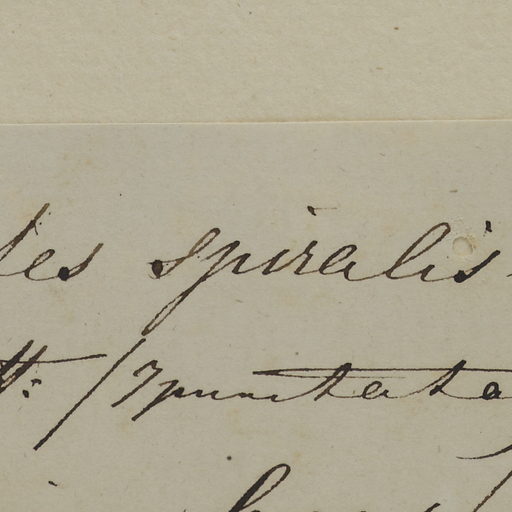 les spiralis
tt: /7punctata